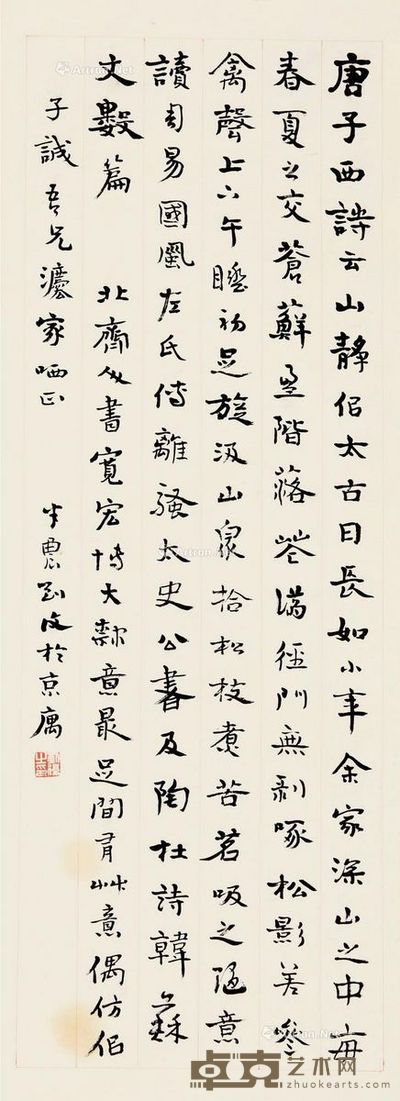 唐子西詩云山靜佀太古日長如小年余家深山之中每
春夏之交蒼蘚盈階落花滿徑門無剝啄松影差參
禽聲上下午睡初足旋汲山泉拾松枝煮苦茗吸之隨意
讀周易國風左氏傳離騷太史公書及陶杜詩韓蘇
文數篇 北齊人書寬宏博大隸意最足間有艸意偶仿佀
子誠吾兄灋家哂正 半農劉復於京寓
卓克艺术网
zhuokearts.com